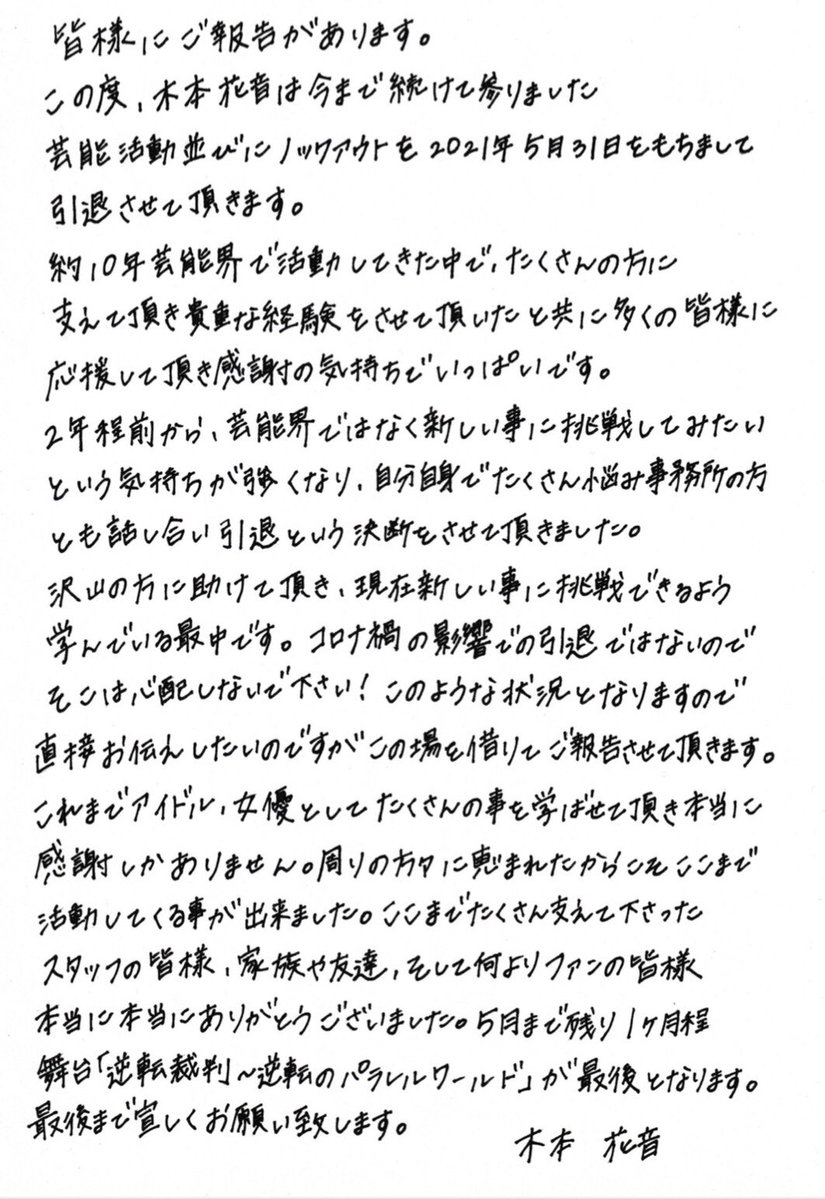 皆様にご報告があります。
この度、木本花音は今まで続けて参りました
芸能活動並びにノックアウトを2021年5月31日をもちまして
引退させて頂きます。
約10年芸能界で活動してきた中で、たくさんの方に
支えて頂き貴重な経験をさせて頂いたと共に多くの皆様に
応援して頂き感謝の気持ちでいっぱいです。
2年程前から、芸能界ではなく新しい事に挑戦してみたい
という気持ちが強くなり、自分自身でたくさん悩み事務所の方
とも話し合い引退という決断をさせて頂きました。
沢山の方に助けて頂き、現在新しい事に挑戦できるよう
学んでいる最中です。コロナ禍の影響での引退ではないので
そこは心配しないで下さい!このような状況となりますので
直接お伝えしたいのですがこの場を借りてご報告させて頂きます。
これまでアイドル、女優としてたくさんの事を学ばせて頂き本当に
感謝しかありません。周りの方々に恵まれたからこそここまで
活動してくる事が出来ました。ここまでたくさん支えて下さった
スタッフの皆様、家族や友達、そして何よりファンの皆様
本当に本当にありがとうございました。5月まで残り1ヶ月程
舞台「逆転裁判~逆転のパラレルワールド」が最後となります。
最後まで宜しくお願い致します。
木本 花音